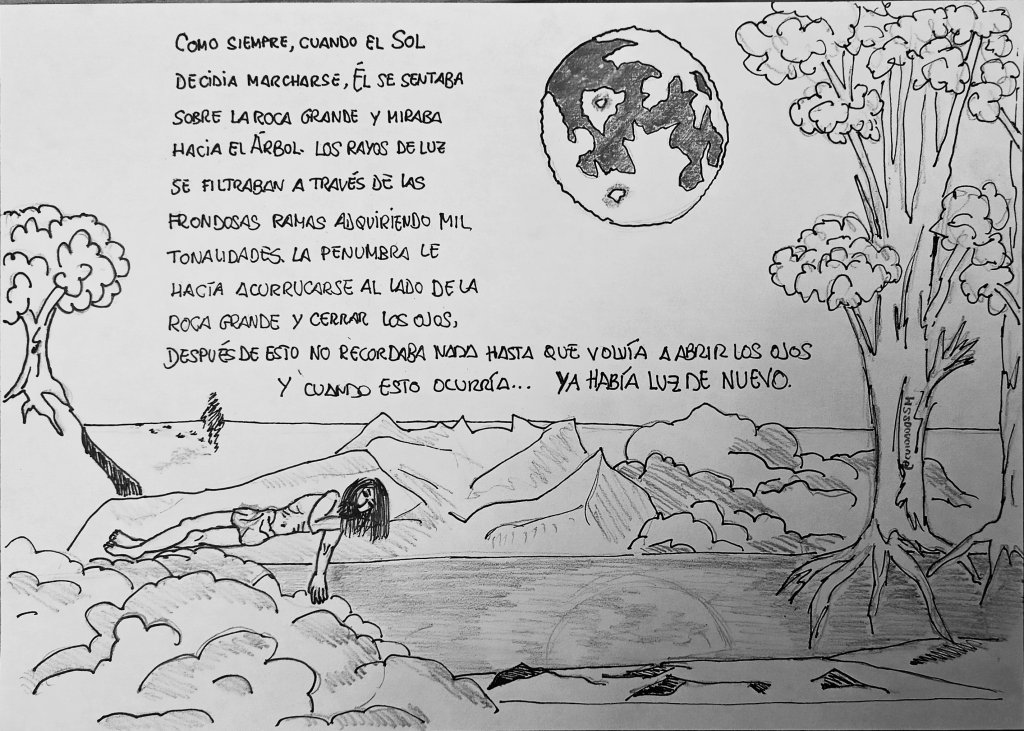 COMO SIEMPRE, CUANDO EL SOL
DECIDIA MARCHARSE, ÉL SE SENTABA
SOBRE LA ROCA GRANDE Y MIRABA
HACIA EL ÁRBOL. LOS RAYOS DE LUZ
SE FILTRABAN A TRAVÉS DE LAS
FRONDOSAS RAMAS ADQUIRIENDO MIL
TONALIDADES. LA PENUMBRA LE
HACÍA ACURRUCARSE AL LADO DE LA
ROCA GRANDE Y CERRAR LOS OJOS,
DESPUÉS DE ESTO NO RECORDABA NADA HASTA QUE VOLVÍA A ABRIR LOS OJOS
Y CUANDO ESTO OCURRÍA... YA HABÍA LUZ DE NUEVO.